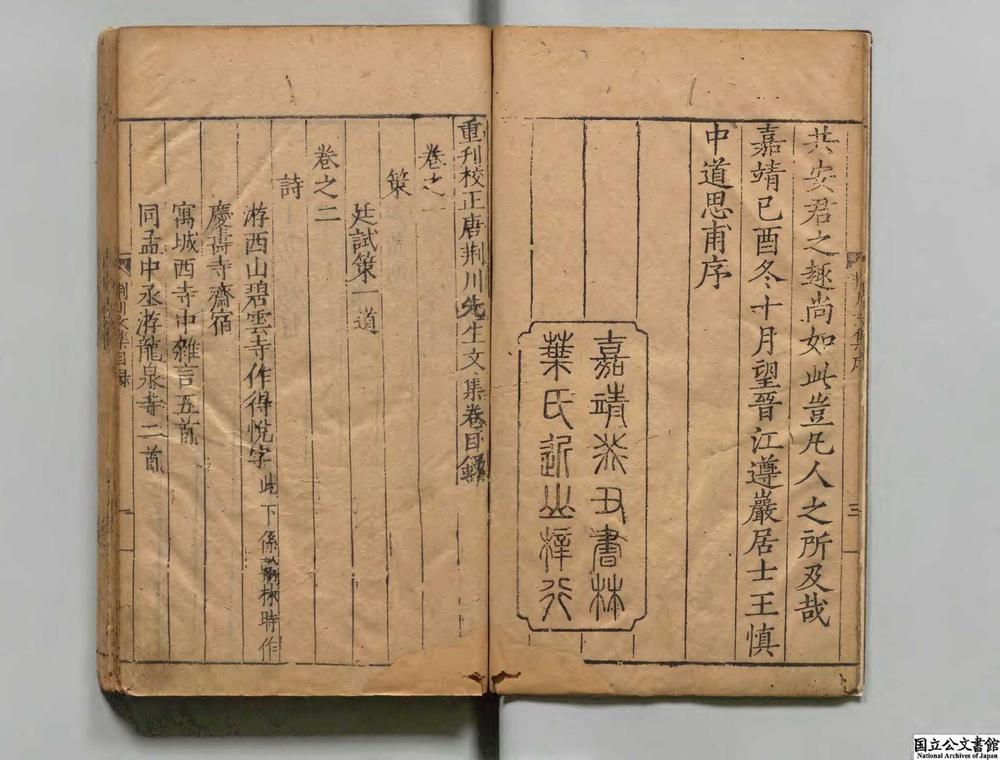 共安君之趣尚如此豈凡人之所及哉
嘉靖己酉冬十月望晉江遵巖居士王慎
中道思甫序
嘉靖癸丑書林
葉氏近山梓行
三
重刊校正唐荊川先生文集卷目錄
卷之
策
廷試策一道
卷之二
詩
游西山碧雲寺作得悅字 此下係翰林時作
慶壽寺齋宿
寓城西寺中雜言五首
同孟中丞游龍泉寺二首
荊川文集目錄
一
国立公文書館
National Archives of Japan